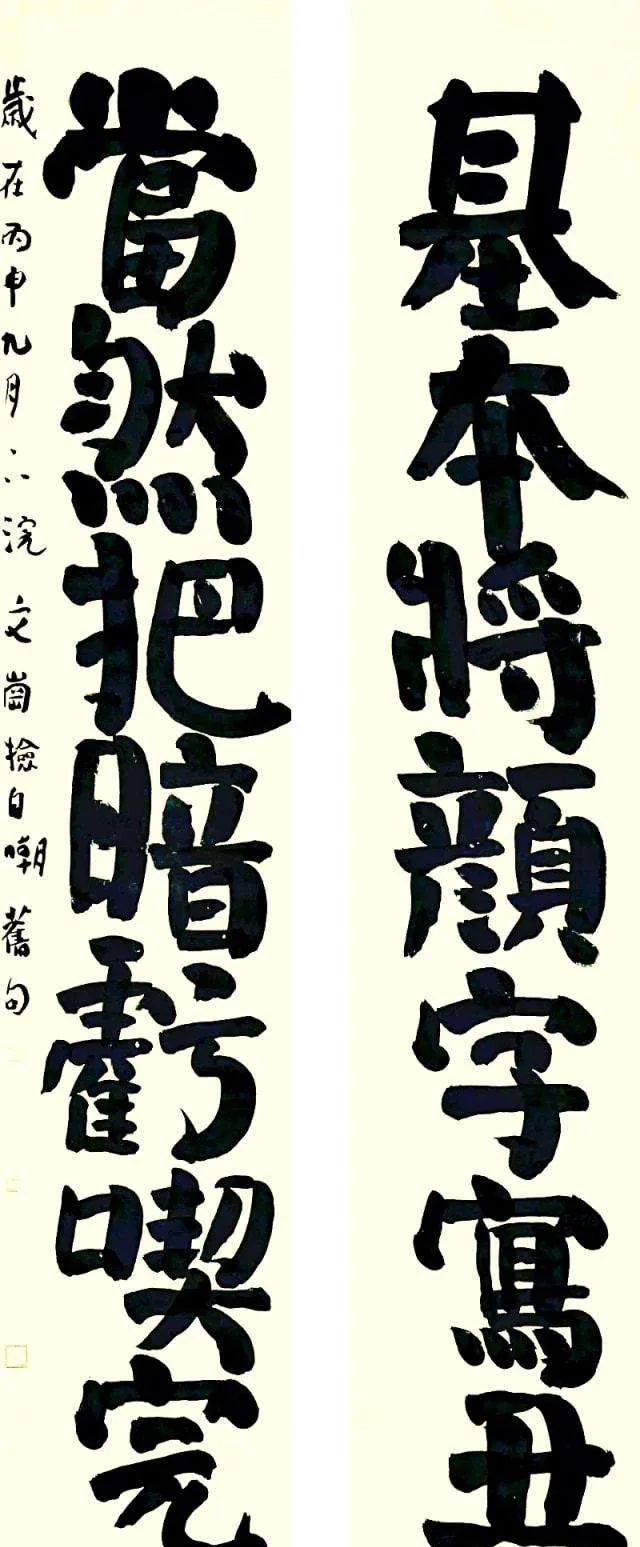 基本將顏字寫丑
當然把暗虧喫完
歲在丙申九月六浣 文崗撿自嘲舊句